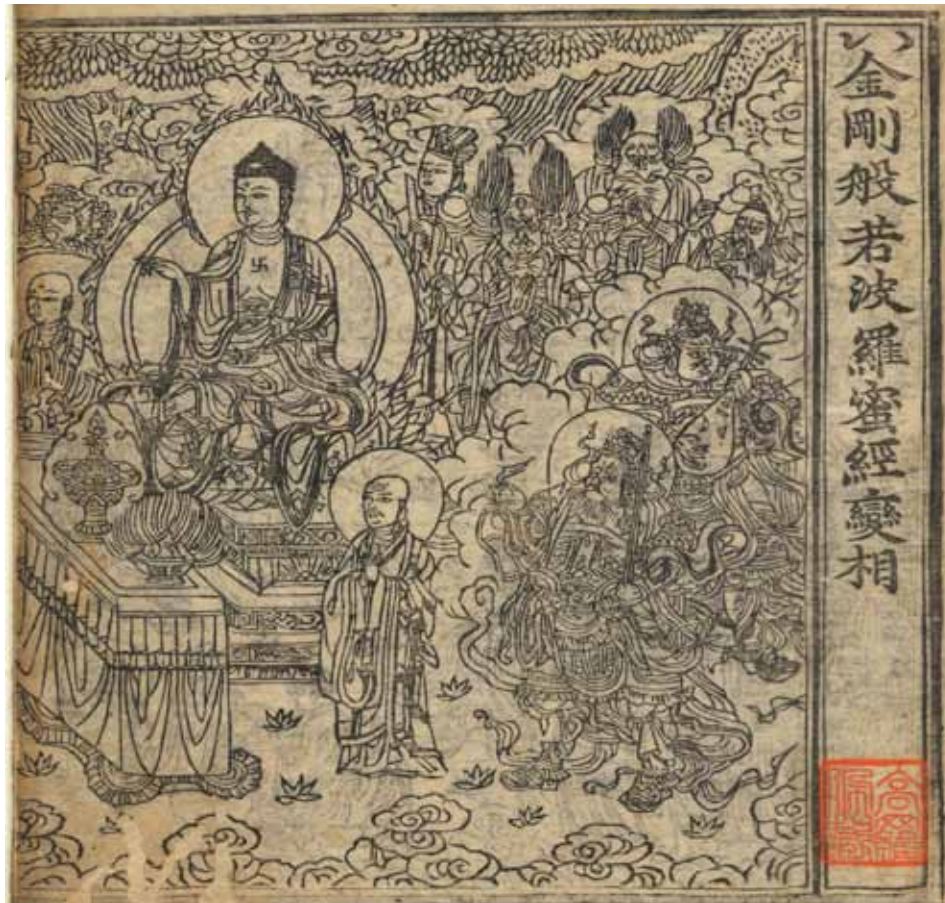 金剛般若波羅蜜經變相